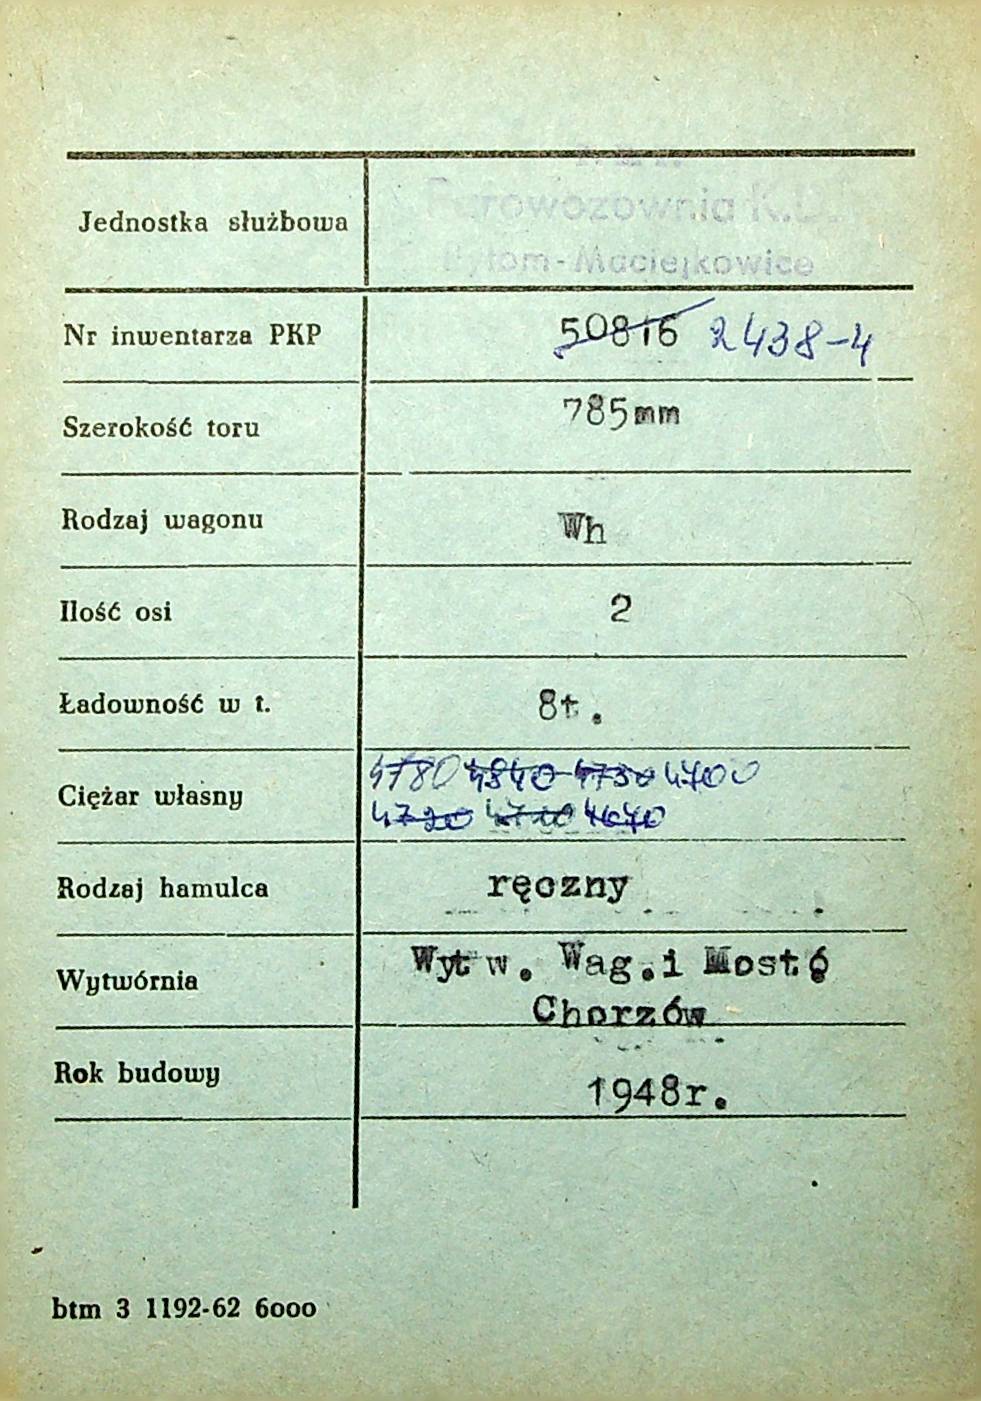 P.K.P.
Jednostka służbowa Parowozownia K.D.
Bytom-Maciejkowice
Nr inwentarza PKP 50816 2438-4
Szerokość toru 785mm
Rodzaj wagonu Wh
Ilość osi 2
Ładowność w t. 8t.
Ciężar własny 4780 4840 4730 4700
4720 4710 4640
Rodzaj hamulca ręczny
Wytwórnia Wytw. Wag.i Mostó
Chorzów
Rok budowy 1948r.
btm 3 1192-62 6000